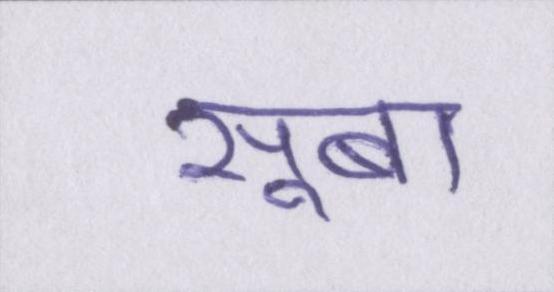 सूबा